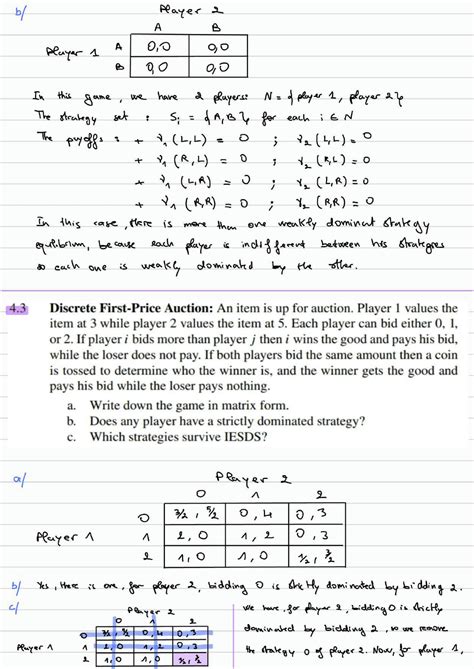 b/
Player 2
A B
Player 1 A 0,0 0,0
B 0,0 0,0
In this game, we have 2 players: N = {player 1, player 2}
The strategy set : Si = {A, B}, for each i ∈ N
The payoffs : + v1 (L, L) = 0 ; v2 (L, L) = 0
+ v1 (R, L) = 0 ; v2 (R, L) = 0
+ v1 (L, R) = 0 ; v2 (L, R) = 0
+ v1 (R, R) = 0 ; v2 (R, R) = 0
In this case, there is more than one weakly dominant strategy
equilibrium, because each player is indifferent between his strategies
so each one is weakly dominated by the other.
4.3 Discrete First-Price Auction: An item is up for auction. Player 1 values the
item at 3 while player 2 values the item at 5. Each player can bid either 0, 1,
or 2. If player i bids more than player j then i wins the good and pays his bid,
while the loser does not pay. If both players bid the same amount then a coin
is tossed to determine who the winner is, and the winner gets the good and
pays his bid while the loser pays nothing.
a. Write down the game in matrix form.
b. Does any player have a strictly dominated strategy?
c. Which strategies survive IESDS?
a/
Player 2
0 1 2
0 3/2, 5/2 0, 4 0, 3
Player 1 1 2, 0 1, 2 0, 3
2 1, 0 1, 0 1/2, 3/2
b/ Yes, there is one, for player 2, bidding 0 is strictly dominated by bidding 2.
c/
Player 2
0 1 2
0 3/2, 5/2 0, 4 0, 3
Player 1 1 2, 0 1, 2 0, 3
2 1, 0 1, 0 1/2, 3/2
We have, for player 2, bidding 0 is strictly
dominated by bidding 2, so we remove
the strategy 0 of player 2. Now, for player 1,